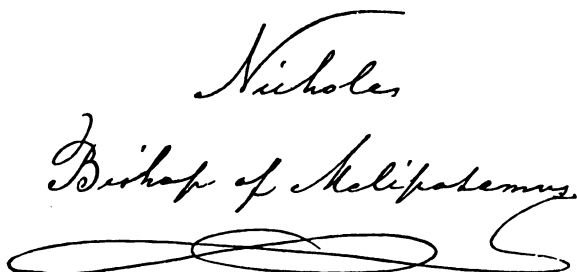 Nicholas
Bishop of Melipotamus